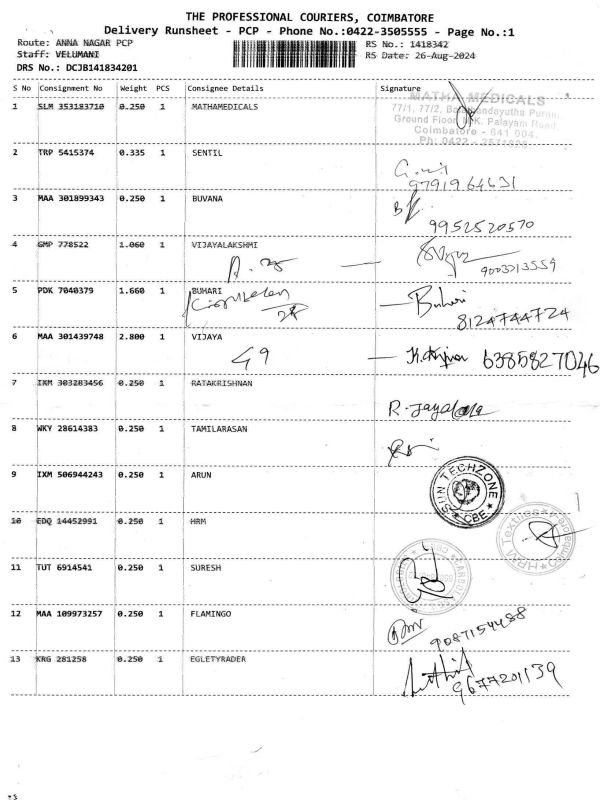 THE PROFESSIONAL COURIERS, COIMBATORE
Delivery Runsheet - PCP - Phone No.:0422-3505555 - Page No.:1
Route: ANNA NAGAR PCP RS No.: 1418342
Staff: VELUMANI RS Date: 26-Aug-2024
DRS No.: DCJB141834201
S No Consignment No Weight PCS Consignee Details Signature
1 SLM 353183710 0.250 1 MATHAMEDICALS
MATHA MEDICALS
77/1, 77/2,
Ground Floor, N.K. Palayam Road
Coimbatore - 641 004.
Ph: 0422 -
2 TRP 5415374 0.335 1 SENTIL
9791964631
3 MAA 301899343 0.250 1 BUVANA
9952520570
4 GMP 778522 1.060 1 VIJAYALAKSHMI
9003213559
5 PDK 7040379 1.660 1 BUHARI
Buhari
8124744724
6 MAA 301439748 2.800 1 VIJAYA
G9 6385827046
7 IXM 303283456 0.250 1 RATAKRISHNAN
R. Jayalala
8 WKY 28614383 0.250 1 TAMILARASAN
9 IXM 506944243 0.250 1 ARUN
SUN TECHZONE
* CBE *
10 EDQ 14452991 0.250 1 HRM
HRM Textiles
Coimbatore
11 TUT 6914541 0.250 1 SURESH
12 MAA 109973257 0.250 1 FLAMINGO
9087154488
13 KRG 281258 0.250 1 EGLETYRADER
9677201139